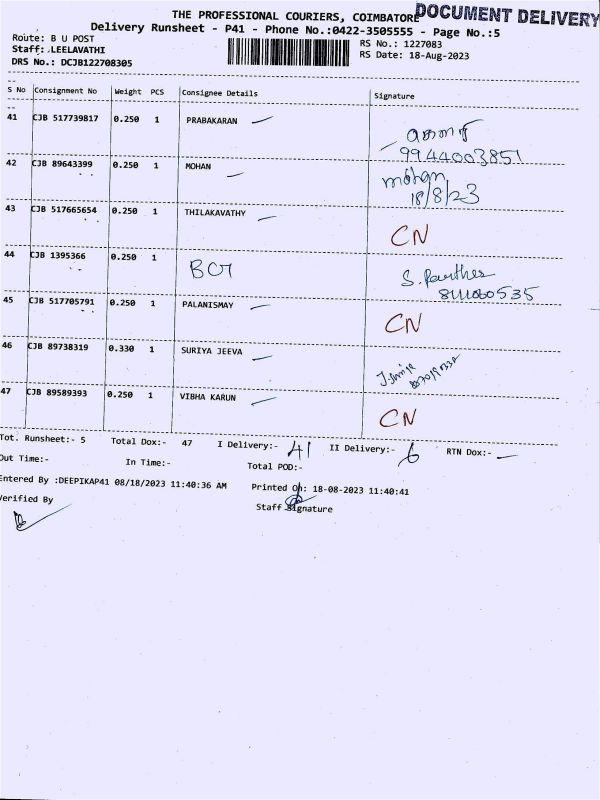 THE PROFESSIONAL COURIERS, COIMBATORE
DOCUMENT DELIVERY
Delivery Runsheet - P41 - Phone No.:0422-3505555 - Page No.:5
Route: B U POST
RS No.: 1227083
Staff: LEELAVATHI
RS Date: 18-Aug-2023
DRS No.: DCJB122708305
S No Consignment No Weight PCS Consignee Details Signature
41 CJB 517739817 0.250 1 PRABAKARAN
9944003851
42 CJB 89643399 0.250 1 MOHAN mohan
18/8/23
43 CJB 517665654 0.250 1 THILAKAVATHY
CN
44 CJB 1395366 0.250 1
BCT
45 CJB 517705791 0.250 1 PALANISMAY
CN
46 CJB 89738319 0.330 1 SURIYA JEEVA
47 CJB 89589393 0.250 1 VIBHA KARUN
CN
Tot. Runsheet:- 5 Total Dox:- 47 I Delivery:- 41 II Delivery:- 6 RTN Dox:- —
Out Time:- In Time:- Total POD:-
Entered By :DEEPIKAP41 08/18/2023 11:40:36 AM Printed On: 18-08-2023 11:40:41
Verified By
Staff Signature